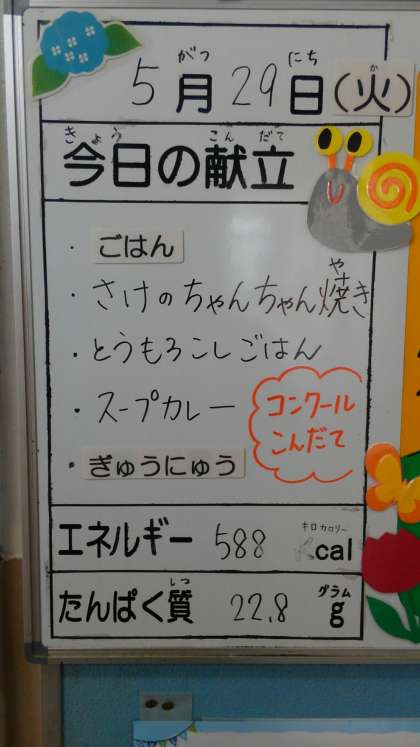 がつ にち か
5月29日(火)
きょう こんだて
今日の献立
・ごはん
や
・さけのちゃんちゃん焼き
・とうもろこしごはん
・スープカレー
コンクール
こんだて
・ぎゅうにゅう
キロカロリー
エネルギー 588 Kcal
しつ グラム
たんぱく質 22.8 g